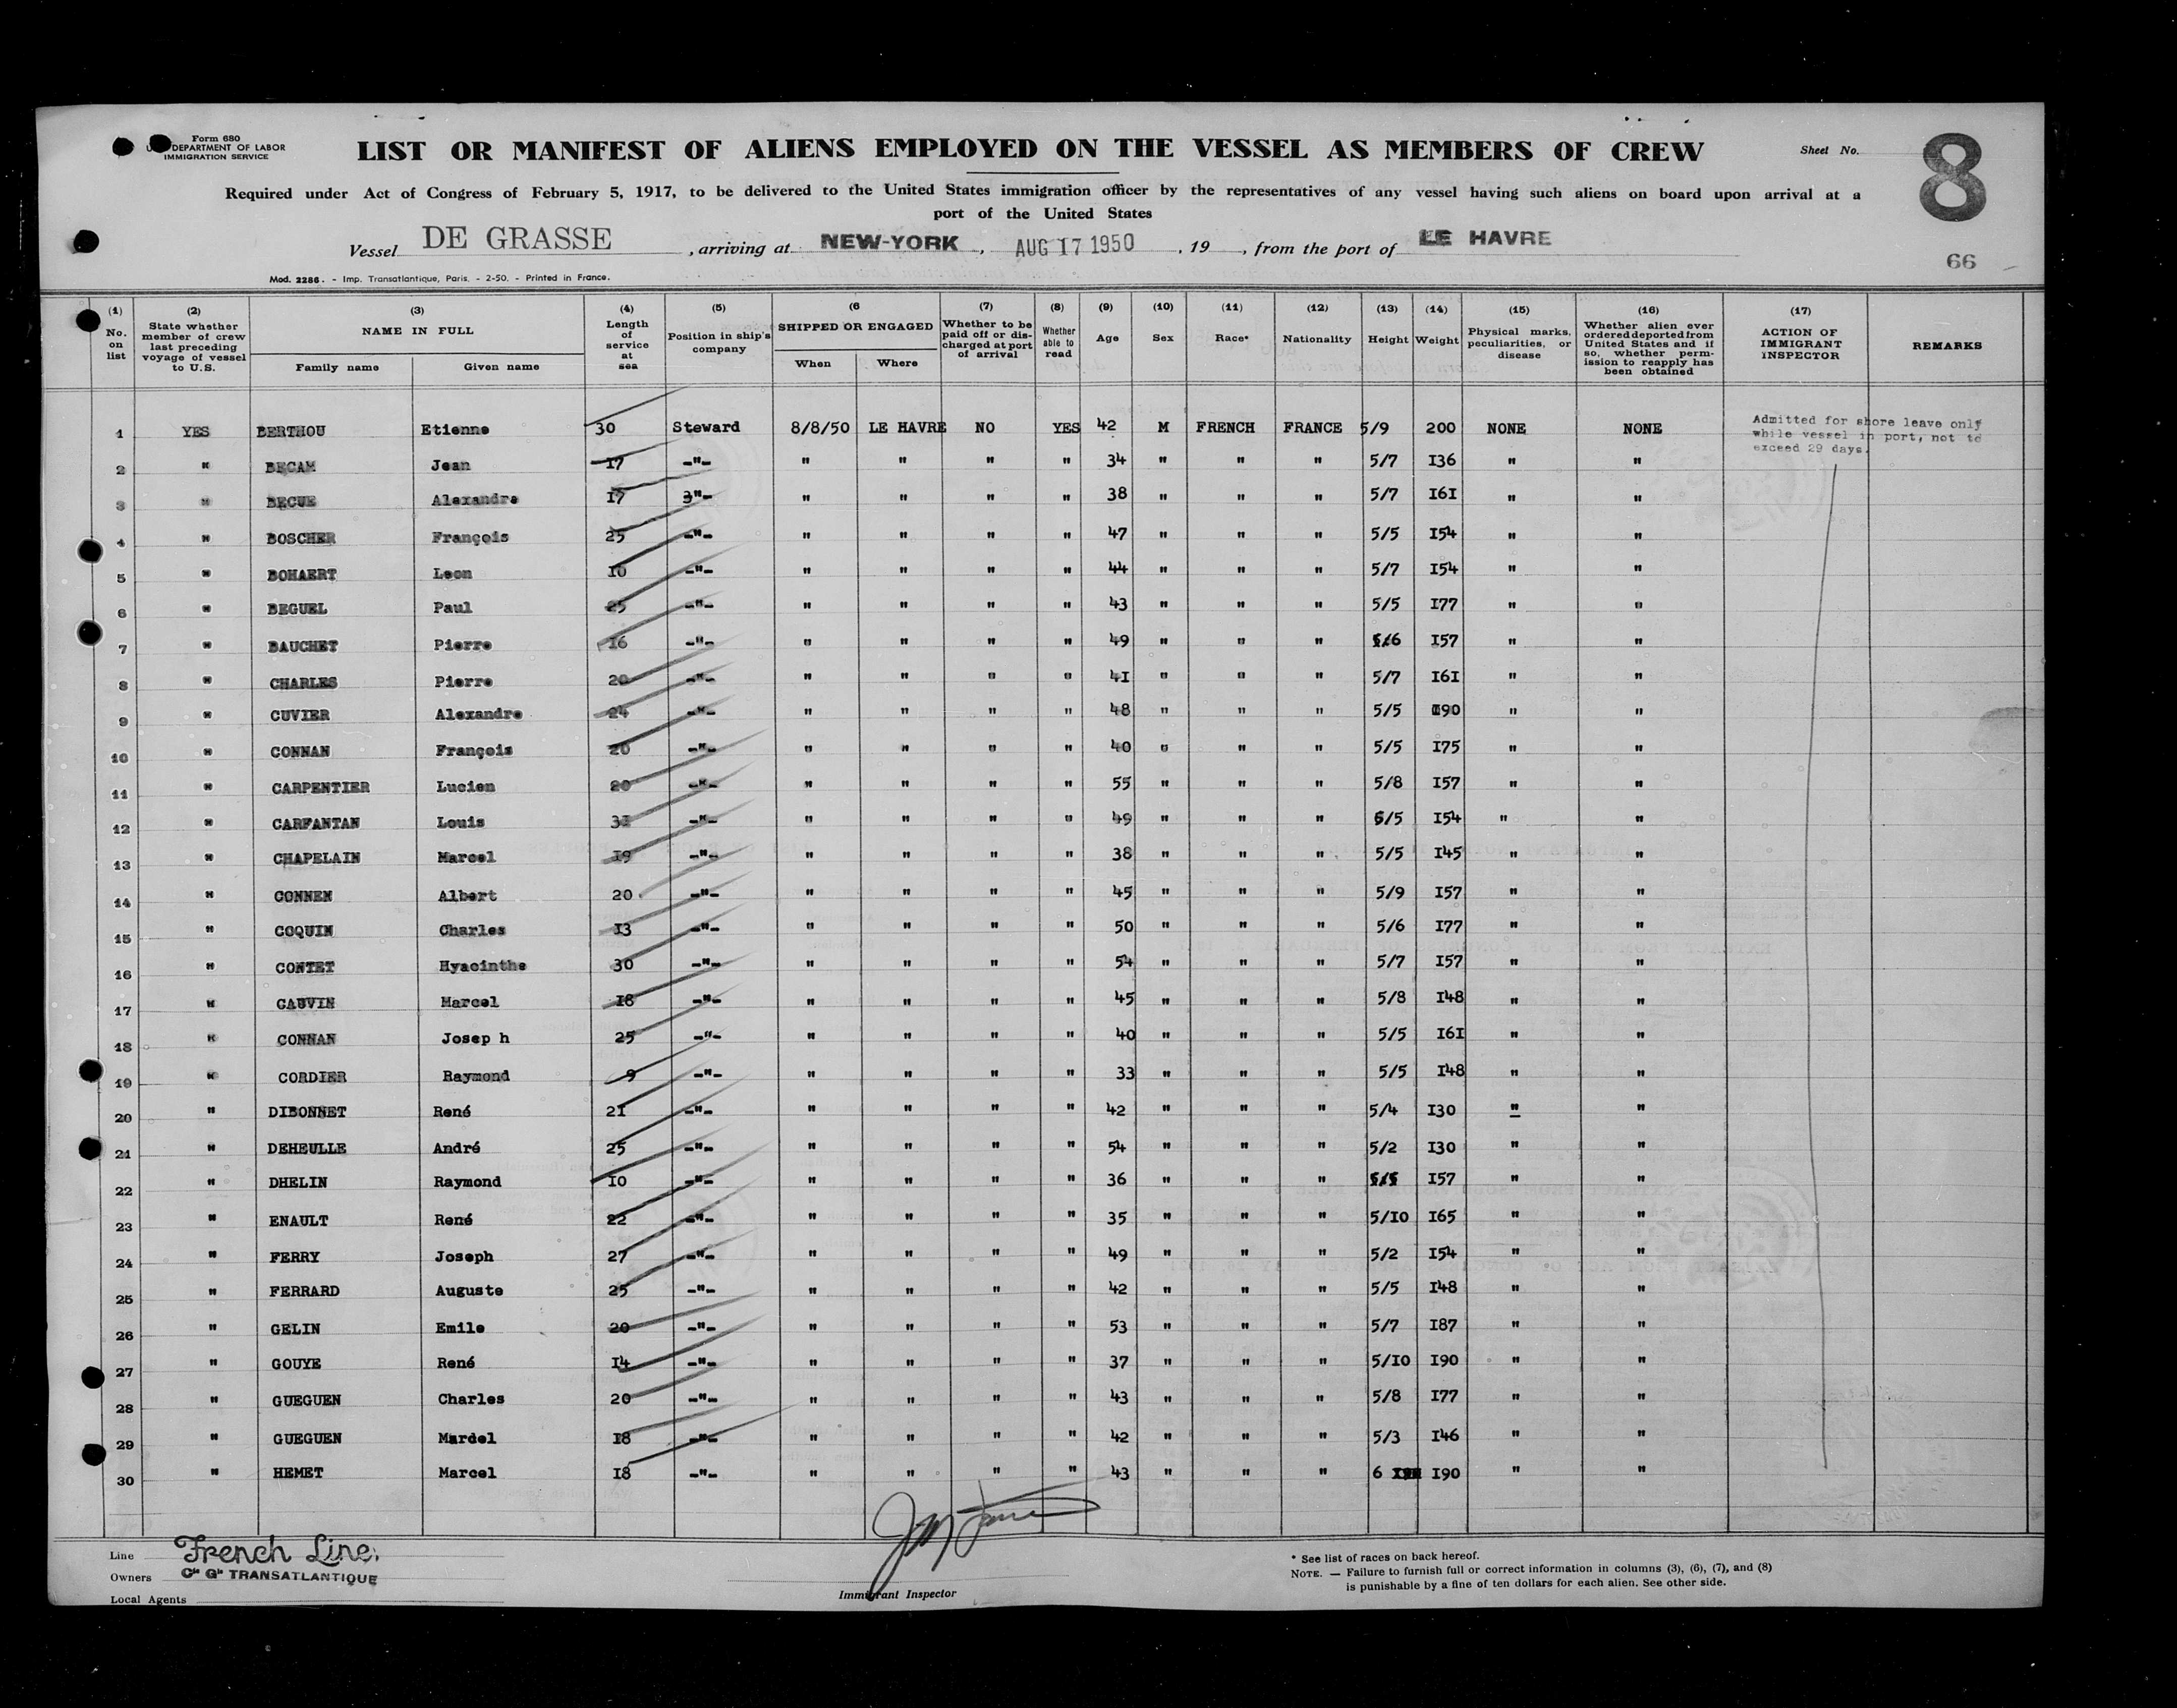 Form 680
DEPARTMENT OF LABOR
IMMIGRATION SERVICE
LIST OR MANIFEST OF ALIENS EMPLOYED ON THE VESSEL AS MEMBERS OF CREW
Sheet No.
8
Required under Act of Congress of February 5, 1917, to be delivered to the United States immigration officer by the representatives of any vessel having such aliens on board upon arrival at a
port of the United States
Vessel DE GRASSE , arriving at NEW-YORK , AUG 17 1950 , 19 , from the port of LE HAVRE
66
Mod. 2286. - Imp. Transatlantique, Paris. - 2-50. - Printed in France.
(1) No. on list
(2) State whether member of crew last preceding voyage of vessel to U.S.
(3) NAME IN FULL
Family name
Given name
(4) Length of service at sea
(5) Position in ship's company
(6 SHIPPED OR ENGAGED
When
Where
(7) Whether to be paid off or discharged at port of arrival
(8) Whether able to read
(9) Age
(10) Sex
(11) Race*
(12) Nationality
(13) Height
(14) Weight
(15) Physical marks, peculiarities, or disease
(16) Whether alien ever ordered deported from United States and if so, whether permission to reapply has been obtained
(17) ACTION OF IMMIGRANT INSPECTOR
REMARKS
1 YES BERTHOU Etienne 30 Steward 8/8/50 LE HAVRE NO YES 42 M FRENCH FRANCE 5/9 200 NONE NONE
Admitted for shore leave only
while vessel in port, not to
exceed 29 days.
2 " BECAM Jean 17 -"- " " " " 34 " " " 5/7 136 " "
3 " BECUE Alexandre 17 3"- " " " " 38 " " " 5/7 161 " "
4 " BOSCHER François 25 -"- " " " " 47 " " " 5/5 154 " "
5 " BOHAERT Leon 10 -"- " " " " 44 " " " 5/7 154 " "
6 " BEGUEL Paul 25 -"- " " " " 43 " " " 5/5 177 " "
7 " BAUCHET Pierre 16 -"- " " " " 49 " " " 5/6 157 " "
8 " CHARLES Pierre 20 -"- " " " " 41 " " " 5/7 161 " "
9 " CUVIER Alexandre 24 -"- " " " " 48 " " " 5/5 190 " "
10 " CONNAN François 20 -"- " " " " 40 " " " 5/5 175 " "
11 " CARPENTIER Lucien 20 -"- " " " " 55 " " " 5/8 157 " "
12 " CARFANTAN Louis 31 -"- " " " " 49 " " " 5/5 154 " "
13 " CHAPELAIN Marcel 19 -"- " " " " 38 " " " 5/5 145 " "
14 " CONNEN Albert 20 -"- " " " " 45 " " " 5/9 157 " "
15 " COQUIN Charles 13 -"- " " " " 50 " " " 5/6 177 " "
16 " CONTET Hyacinthe 30 -"- " " " " 54 " " " 5/7 157 " "
17 " CAUVIN Marcel 18 -"- " " " " 45 " " " 5/8 148 " "
18 " CONNAN Josep h 25 -"- " " " " 40 " " " 5/5 161 " "
19 " CORDIER Raymond 9 -"- " " " " 33 " " " 5/5 148 " "
20 " DIBONNET René 21 -"- " " " " 42 " " " 5/4 130 " "
21 " DEHEULLE André 25 -"- " " " " 54 " " " 5/2 130 " "
22 " DHELIN Raymond 10 -"- " " " " 36 " " " 5/5 157 " "
23 " ENAULT René 22 -"- " " " " 35 " " " 5/10 165 " "
24 " FERRY Joseph 27 -"- " " " " 49 " " " 5/2 154 " "
25 " FERRARD Auguste 25 -"- " " " " 42 " " " 5/5 148 " "
26 " GELIN Emile 20 -"- " " " " 53 " " " 5/7 187 " "
27 " GOUYE René 14 -"- " " " " 37 " " " 5/10 190 " "
28 " GUEGUEN Charles 20 -"- " " " " 43 " " " 5/8 177 " "
29 " GUEGUEN Mardel 18 -"- " " " " 42 " " " 5/3 146 " "
30 " HEMET Marcel 18 -"- " " " " 43 " " " 6 190 " "
Line French Line.
Owners Cie Gle TRANSATLANTIQUE
Local Agents
Immigrant Inspector
* See list of races on back hereof.
NOTE. — Failure to furnish full or correct information in columns (3), (6), (7), and (8)
is punishable by a fine of ten dollars for each alien. See other side.